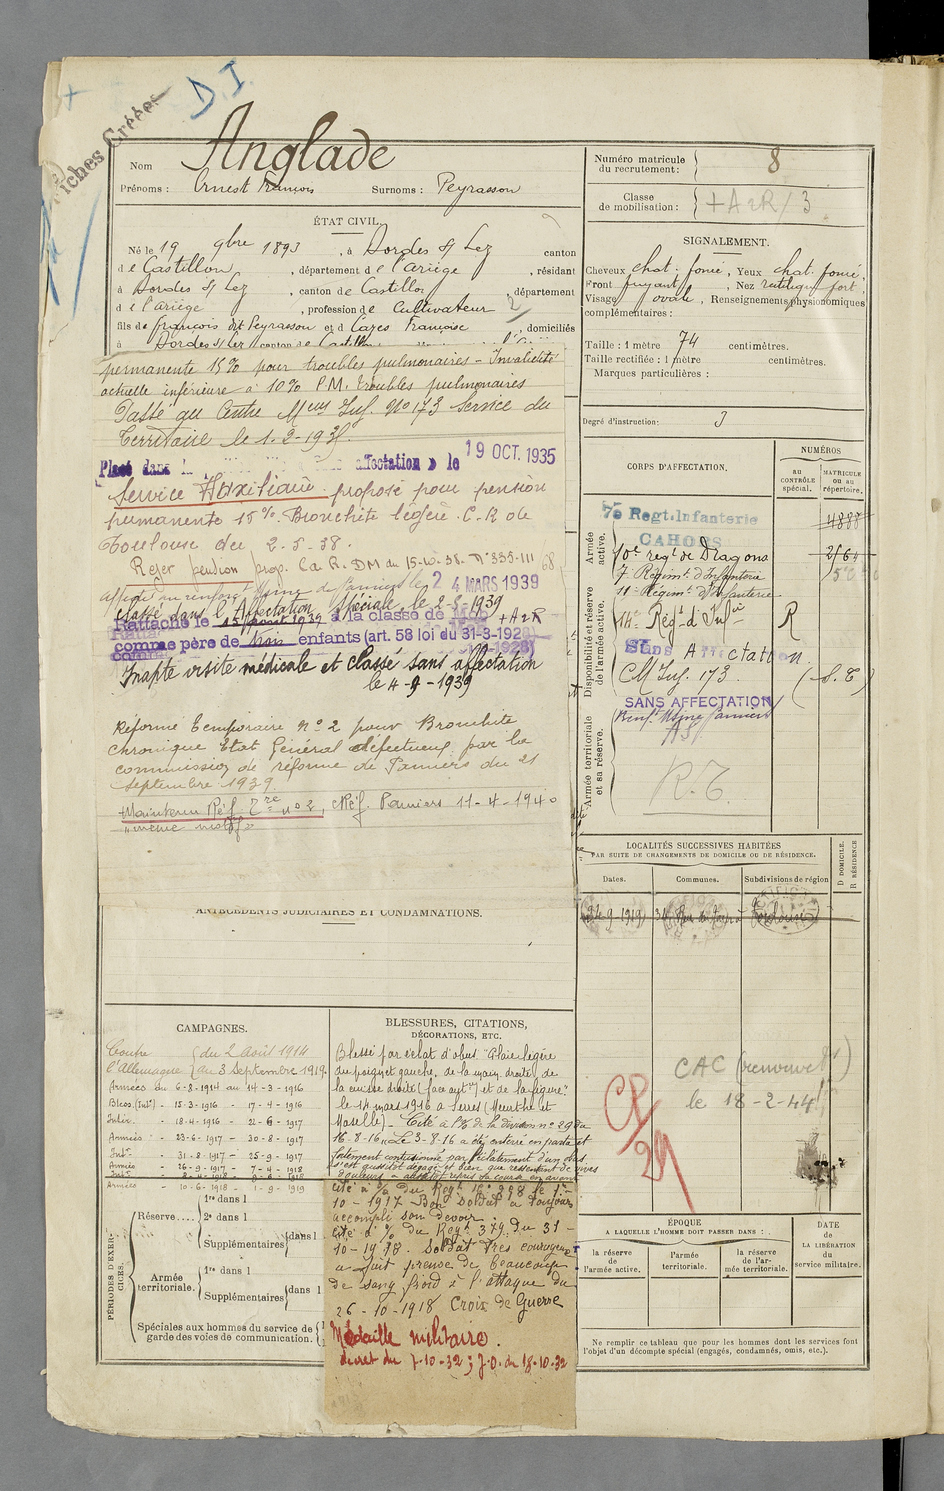 D.I.
Fiches Créées
Nom Anglade
Prénoms : Ernest François Surnoms : Peyrasson
ÉTAT CIVIL.
Né le 19 9bre 1893, à Bordes s/ Lez canton
de Castillon, département de l'Ariège, résidant
à Bordes s/ Lez, canton de Castillon, département
de l'Ariège, profession de Cultivateur
fils de françois dit Peyrasson et d Cazes Françoise, domiciliés
à Bordes s/ Lez canton de Castillon
permanente 15% pour troubles pulmonaires - Invalidité
actuelle inférieure à 10% P.M. troubles pulmonaires
Passé au Centre Inf. No 173 Service du
Territoire le 1.2-193
Placé dans la affectation » le 19 OCT. 1935
Service Auxiliaire proposé pour pension
permanente 15%. Bronchite légère. C.R de
Toulouse du 2.5.38.
Rejet pension prop.
affecté 24 MARS 1939
Passé dans l'Affectation spéciale, le 2-5-1939
Rattaché le 15 août 1939 à la classe de Mob + A 2 R
comme père de trois enfants (art. 58 loi du 31-3-1928)
Inapte visite médicale et classé sans affectation
le 4-9-1939
Réforme Temporaire no 2 pour Bronchite
chronique Etat Général défectueux par la
commission de réforme de Pamiers du 21
septembre 1939.
Maintenu Réf. Tre no 2, CRéf. Pamiers 11-4-1940
"même motif"
ANTÉCÉDENTS JUDICIAIRES ET CONDAMNATIONS.
CAMPAGNES.
Contre l'Allemagne { du 2 août 1914
au 3 Septembre 1919.
Armées du 6-8-1914 au 14-3-1916
Bless. (Intr) - 15-3-1916 - 17-4-1916
Intér. - 18-4-1916 - 22-6-1917
Armées - 23-6-1917 - 30-8-1917
Intr - 31-8-1917 - 25-9-1917
Armées - 26-9-1917 - 7-4-1918
Armées - 10-6-1918 - 1-9-1919
PÉRIODES D'EXERCICES.
Réserve.... 1re dans l
2e dans l
Supplémentaires dans l
Armée territoriale. 1re dans l
Supplémentaires dans l
Spéciales aux hommes du service de
garde des voies de communication.
BLESSURES, CITATIONS,
DÉCORATIONS, ETC.
Blessé par éclat d'obus "Plaie légère
du poignet gauche, de la main droite, de
la cuisse droite (face ant.) et de la figure"
le 14 mars 1916 à Serres (Meurthe et
Moselle) - Cité à l'O/ de la division no 29 du
16-8-16 « Le 3-8-16 a été enterré en partie et
fortement contusionné par l'éclatement d'un obus
s'est aussitôt dégagé et bien que ressentant de vives
douleurs a aussitôt repris sa course en avant
Cité à l'O/ du Régt no 298 le 1er-
10-1917 Bon soldat a toujours
accompli son devoir.
Cité à l'O/ du Régt 379 du 31-
10-1918. Soldat très courageux
a fait preuve de beaucoup
de sang froid à l'attaque du
26-10-1918 Croix de Guerre
Médaille militaire.
décret du 7-10-32; J.O. du 18-10-32
Numéro matricule
du recrutement : 8
Classe
de mobilisation : + A 2 R / 3
SIGNALEMENT.
Cheveux chat. foncé, Yeux chat. foncé,
Front fuyant, Nez rectiligne fort
Visage ovale, Renseignements physionomiques
complémentaires :
Taille : 1 mètre 74 centimètres.
Taille rectifiée : 1 mètre centimètres.
Marques particulières :
Degré d'instruction : 3
CORPS D'AFFECTATION.
NUMÉROS
AU CONTRÔLE spécial.
MATRICULE ou au répertoire.
Armée active.
7e Regt. Infanterie
CAHORS
4888
10e regt de Dragons
7e Régimt d'Infanterie
11e Régimt d'Infanterie
Disponibilité et réserve
de l'armée active.
14e Régt d'Infie R
Sans Affectation
CM Inf. 173. (S.T)
SANS AFFECTATION
Armée territoriale
et sa réserve.
Usine Pamiers
AS
R.T.
LOCALITÉS SUCCESSIVES HABITÉES
PAR SUITE DE CHANGEMENTS DE DOMICILE OU DE RÉSIDENCE.
Dates. Communes. Subdivisions de région
D DOMICILE.
R RÉSIDENCE
24-9-1919 Toulouse
CAC (renouvelt)
le 18-2-44
CP/29
ÉPOQUE
A LAQUELLE L'HOMME DOIT PASSER DANS :
la réserve de l'armée active.
l'armée territoriale.
la réserve de l'armée territoriale.
DATE
DE
LA LIBÉRATION
du
service militaire.
Ne remplir ce tableau que pour les hommes dont les services font
l'objet d'un décompte spécial (engagés, condamnés, omis, etc.).